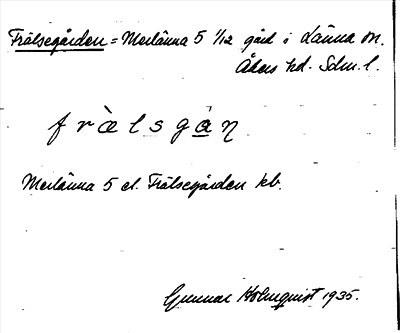 Frälsegården = Merlänna 5 1/12 gård i Länna sn.
Åkers hd. Sdm. l.
fràelsgạ̊η
Merlänna 5 el. Frälsegården kb.
Gunnar Holmquist 1935.